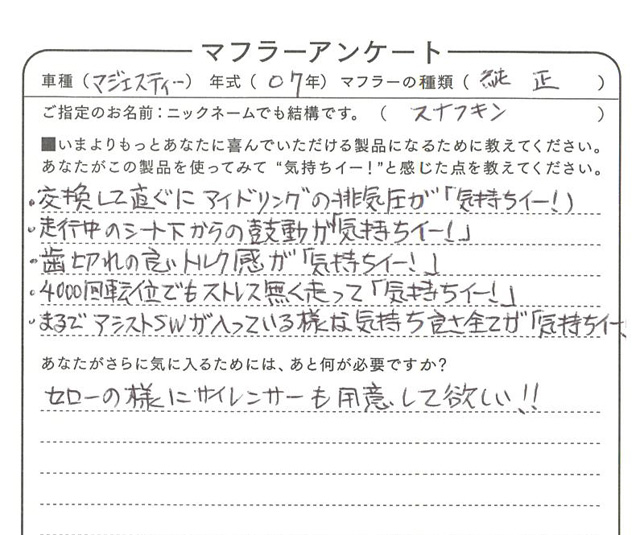 マフラーアンケート
車種（マジェスティー） 年式（07年） マフラーの種類（純正）
ご指定のお名前：ニックネームでも結構です。（スナフキン）
■いまよりもっとあなたに喜んでいただける製品になるために教えてください。
あなたがこの製品を使ってみて “気持ちイー！”と感じた点を教えてください。
・交換して直ぐにアイドリングの排気圧が「気持ちイー！」
・走行中のシート下からの鼓動が「気持ちイー！」
・歯切れの良いトルク感が「気持ちイー！」
・4000回転位でもストレス無く走って「気持ちイー！」
・まるでアシストSWが入っている様な気持ち良さ全てが「気持ちイー
あなたがさらに気に入るためには、あと何が必要ですか？
セローの様にサイレンサーも用意して欲しい!!